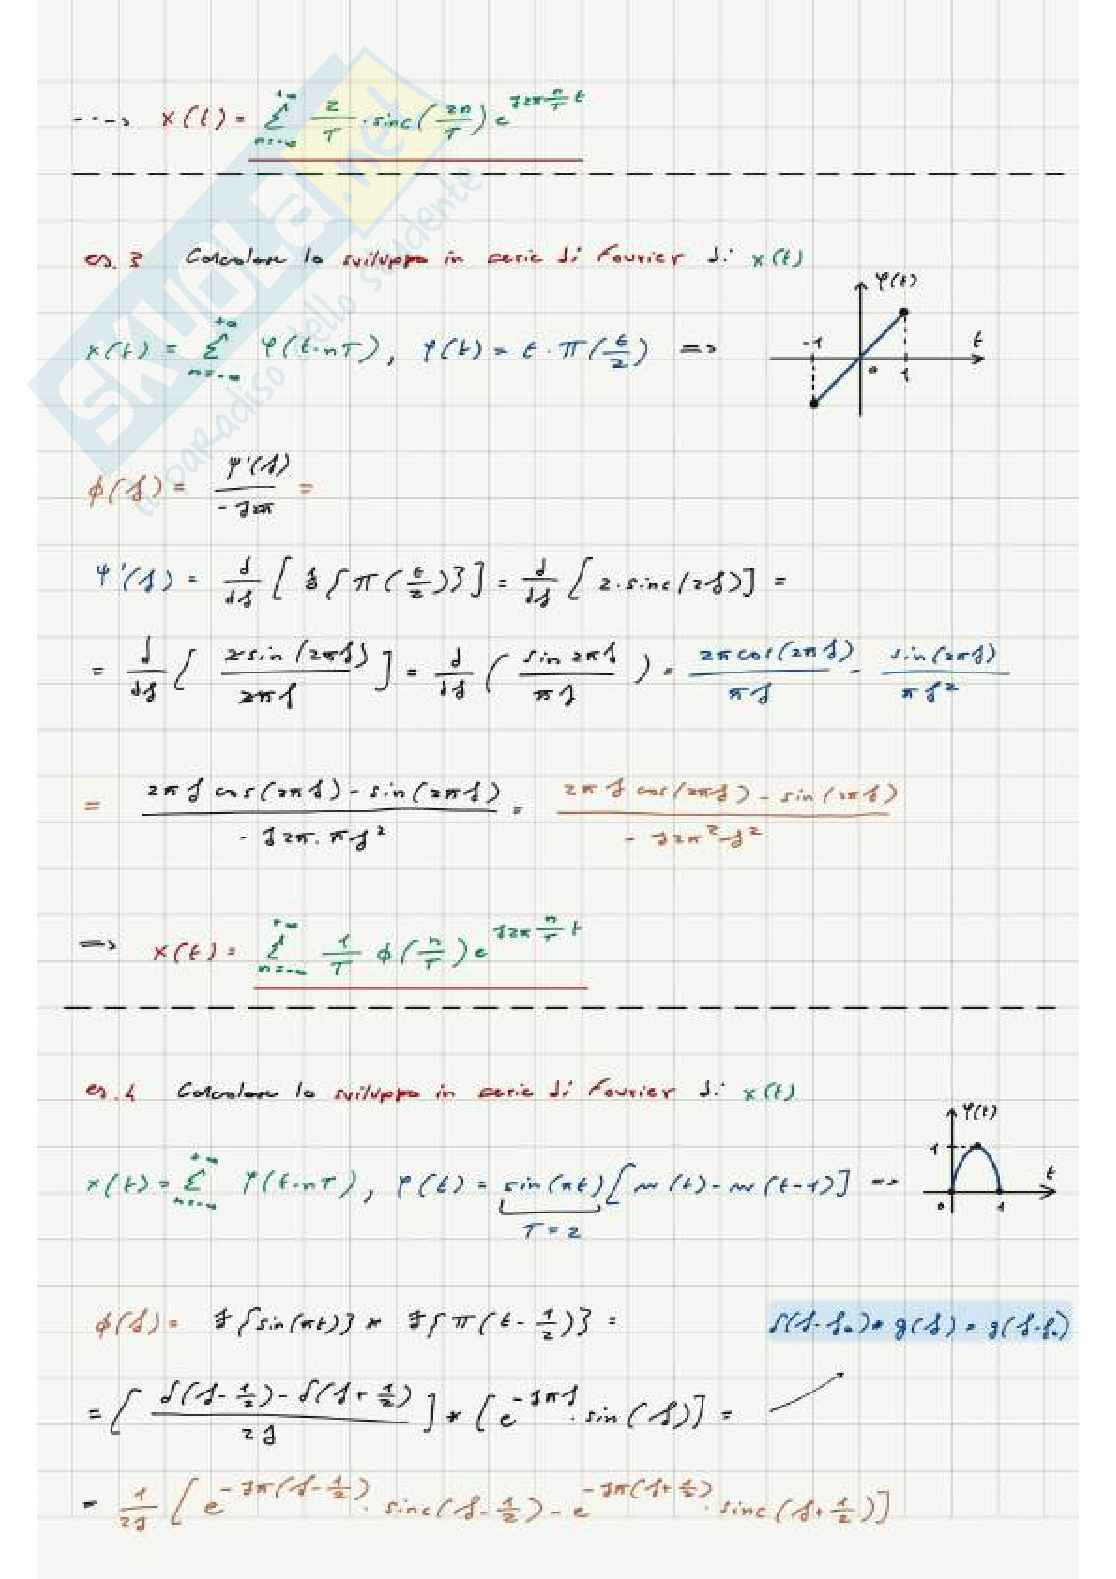 ---> x(t) = Σ_{n=-∞}^{+∞} 2/T · sinc(2n/T) e^{j2π n/T t}
SKUOLA.net
il paradiso dello studente
es. 3 Calcolare lo sviluppo in serie di Fourier di x(t)
φ(t)
x(t) = Σ_{n=-∞}^{+∞} φ(t-nT), φ(t) = t · π(t/2) =>
-1 0 1 t
ϕ(f) = φ'(f) / -j2π =
φ'(f) = d/df [ F{π(t/2)}] = d/df [2·sinc(2f)] =
= d/df [ 2sin(2πf) / 2πf ] = d/df ( sin 2πf / πf ) = 2πcos(2πf) / πf - sin(2πf) / πf²
= 2πf cos(2πf) - sin(2πf) / -j2π·πf² = 2πf cos(2πf) - sin(2πf) / -j2π²f²
=> x(t) = Σ_{n=-∞}^{+∞} 1/T ϕ(n/T) e^{j2π n/T t}
es. 4 Calcolare lo sviluppo in serie di Fourier di x(t)
φ(t)
x(t) = Σ_{n=-∞}^{+∞} φ(t-nT), φ(t) = sin(πt) [u(t) - u(t-1)] =>
1 0 1 t
T = 2
ϕ(f) = F{sin(πt)} * F{π(t - 1/2)} =
δ(f-f₀) * g(f) = g(f-f₀)
= [ δ(f - 1/2) - δ(f + 1/2) / 2j ] * [e^{-jπf} · sin(f)] =
= 1/2j [ e^{-jπ(f-1/2)} · sinc(f - 1/2) - e^{-jπ(f+1/2)} · sinc(f + 1/2)]